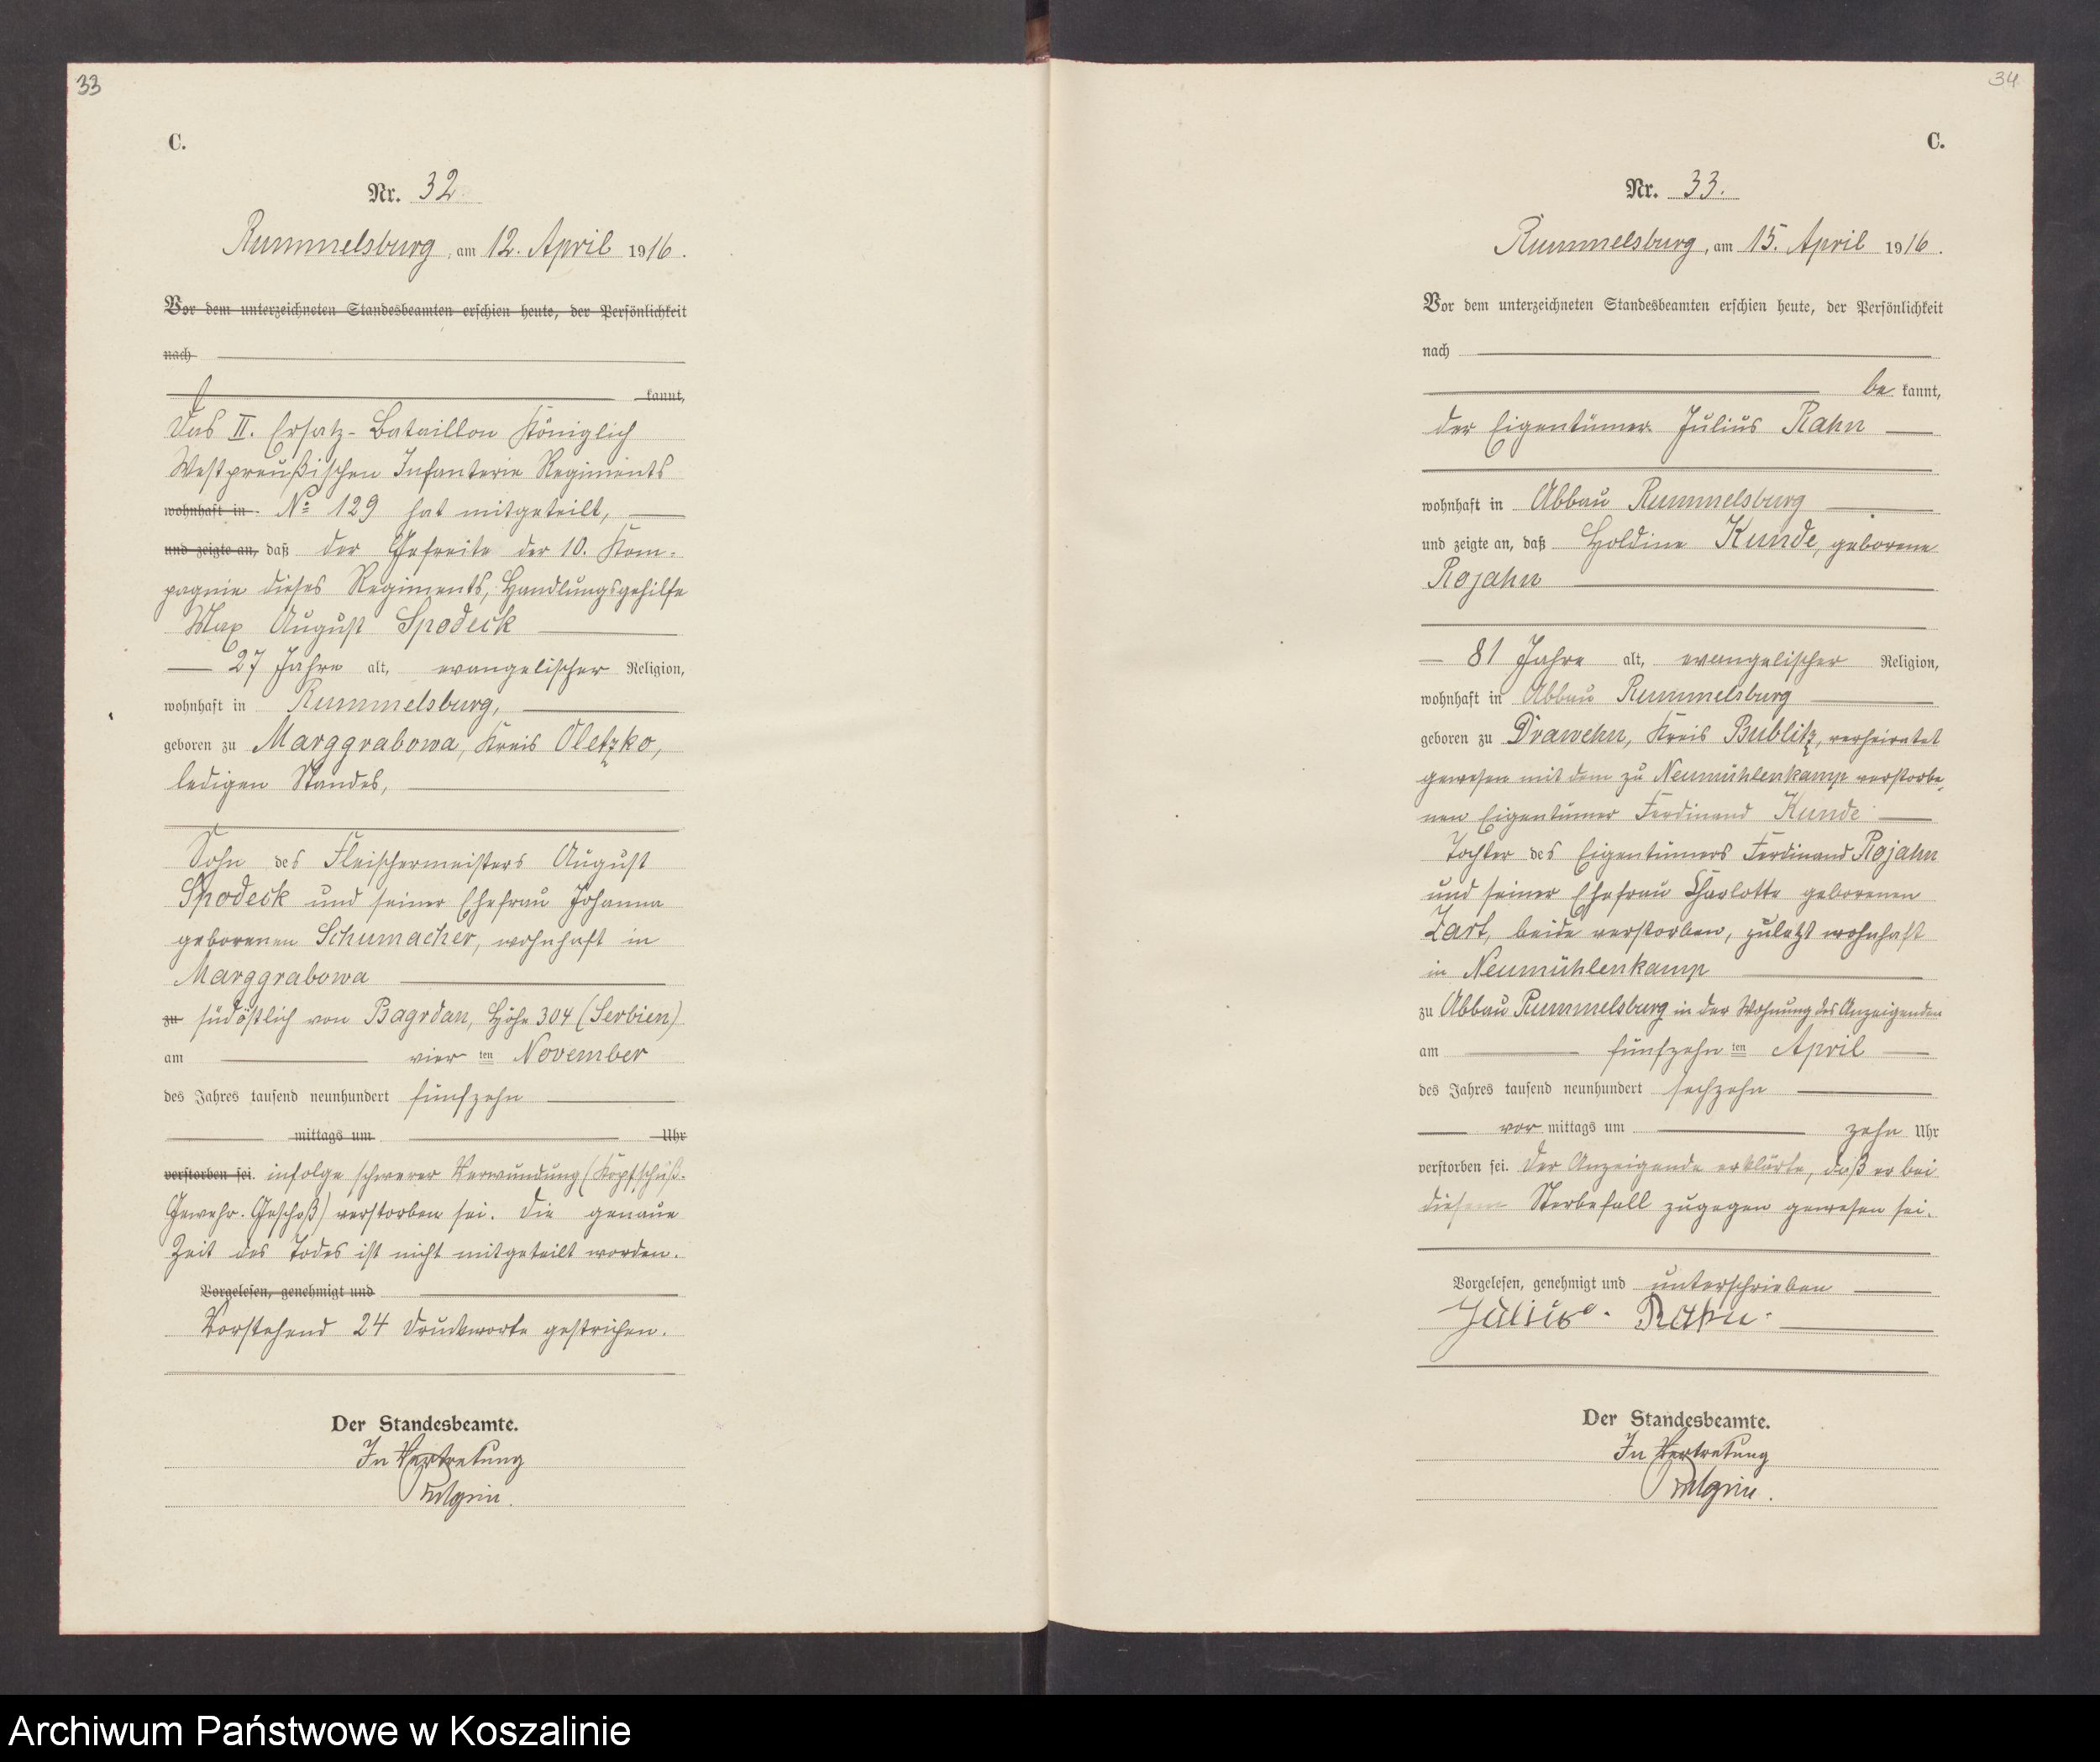 33
C.
Nr. 32
Rummelsburg, am 12. April 1916.
Vor dem unterzeichneten Standesbeamten erschien heute, der Persönlichkeit
nach
kannt,
das II. Ersatz-Bataillon Königlich
Westpreußischen Infanterie Regiments
wohnhaft in No 129 hat mitgeteilt,
und zeigte an, daß der Gefreite der 10. Kom-
pagnie dieses Regiments, Handlungsgehilfe
Max August Spodeck
27 Jahre alt, evangelischer Religion,
wohnhaft in Rummelsburg,
geboren zu Marggrabowa, Kreis Oletzko,
ledigen Standes,
Sohn des Fleischermeisters August
Spodeck und seiner Ehefrau Johanna
geborenen Schumacher, wohnhaft in
Marggrabowa
zu südöstlich von Bagrdan, Höhe 304 (Serbien)
am vier ten November
des Jahres tausend neunhundert fünfzehn
mittags um Uhr
verstorben sei. infolge schwerer Verwundung (Kopfschuß-
Gewehr-Geschoß) verstorben sei. Die genaue
Zeit des Todes ist nicht mitgeteilt worden.
Vorgelesen, genehmigt und
Vorstehend 24 Druckworte gestrichen.
Der Standesbeamte.
In Vertretung
34
C.
Nr. 33.
Rummelsburg, am 15. April 1916.
Vor dem unterzeichneten Standesbeamten erschien heute, der Persönlichkeit
nach
be kannt,
der Eigentümer Julius Rahn
wohnhaft in Abbau Rummelsburg
und zeigte an, daß Holdine Kunde, geborene
Rojahn
81 Jahre alt, evangelischer Religion,
wohnhaft in Abbau Rummelsburg
geboren zu Drawehn, Kreis Bublitz, verheiratet
gewesen mit dem zu Neumühlenkamp verstorbe-
nen Eigentümer Ferdinand Kunde
Tochter des Eigentümers Ferdinand Rojahn
und seiner Ehefrau Charlotte geborenen
Zart, beide verstorben, zuletzt wohnhaft
in Neumühlenkamp
zu Abbau Rummelsburg in der Wohnung des Anzeigenden
am fünfzehn ten April
des Jahres tausend neunhundert sechzehn
vor mittags um zehn Uhr
verstorben sei. Der Anzeigende erklärte, daß er bei
diesem Sterbefall zugegen gewesen sei.
Vorgelesen, genehmigt und unterschrieben
Julius Rahn
Der Standesbeamte.
In Vertretung
Archiwum Państwowe w Koszalinie